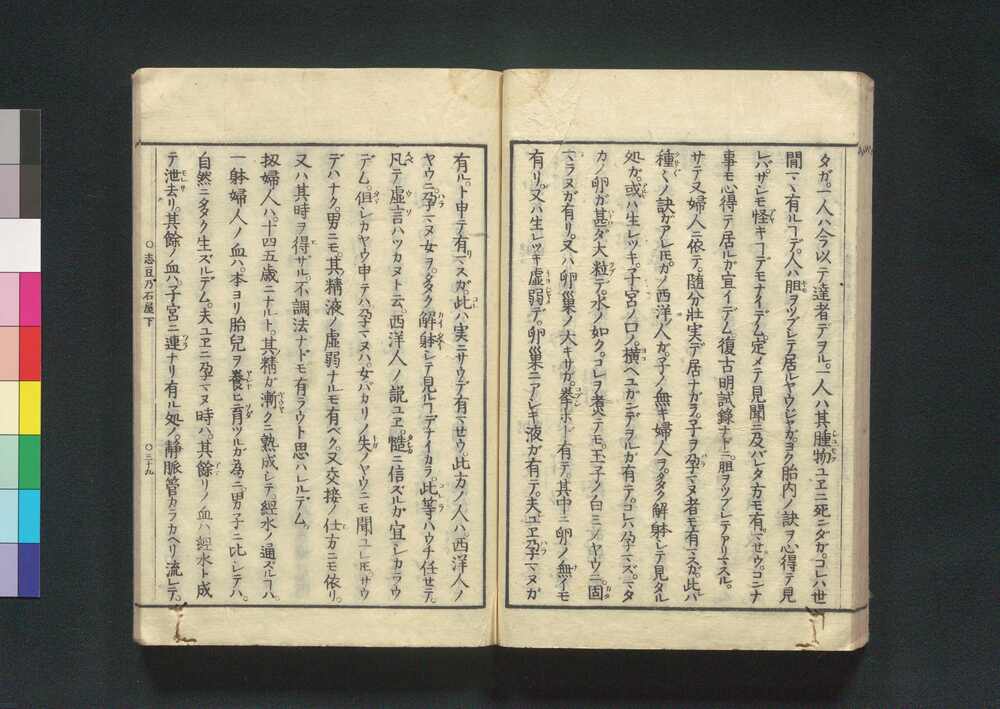 タガ。一人ハ今以テ達者デヲル。一人ハ其腫物ユヱニ死ニダガ。コレハ世
間ニマヽ有ルコデ。人ハ胆ヲツブシテ居ルヤウジヤガ。ヨク胎内ノ訣ヲ心得テ見
レバ。サシモ怪キコデモナイデム。定メテ見聞ニ及バレタ方モ有マせウ。コンナ
事モ心得テ居ルガ宜イデム。復古明試録ナドニ。胆ヲツブシテアリマスル。
サテ又婦人ニ依テ。随分壮実デ居ナガラ。子ヲ孕マヌ者モ有マスガ。此ハ
種〻ノ訣ガアレ𪜈。カノ西洋人ガ。子ノ無キ婦人ヲ。タク解躰シテ見タル
処ガ。或ハ生レツキ。子宮ノ口ノ。横ヘユガニデヲルガ有テ。コレハ孕マズ。マタ
カノ卵ガ甚ダ大粒デ。水ノ如ク。コレヲ煮テモ。玉子ノ白ミノヤウニ。固
マラヌガ有リ。又ハ卵巣ノ大キサガ。拳ホド有テ。其中ニ卵ノ無イモ
有リ。又ハ生レツキ虚弱デ。卵巣ニアシキ液ガ有テ。夫ユヱ孕マヌガ
有ルト申テ有マスガ。此ハ実ニサウデ有マせウ。此方ノ人ハ。西洋人ノ
ヤウニ。孕マヌ女ヲ。タク解躰シテ見ルコデナイカラ。此等ハウチ任せテ。
凡テ虚言ハツカヌト云。西洋人ノ説ユヱ。慥ニ信ズルガ宜シカラウ
デム。但シカヤウ申テハ。孕マヌハ。女バカリノ失ノヤウニモ聞ユレ𪜈。サウ
デハナク。男ニモ。其精液ノ虚弱ナルモ有ベク。又交接ノ仕方ニモ依リ。
又ハ其時ヲ得ザル。不調法ナドモ有ラウト思ハレルデム。
扨婦人ハ。十四五歳ニナルト。其精ガ漸クニ熟成シテ。経水ノ通ズルコハ。
一躰婦人ノ血ハ。本ヨリ胎児ヲ養ヒ育ツルガ為ニ。男子ニ比シテハ。
自然ニタク生ズルデム。夫ユヱニ孕マヌ時ハ。其餘リノ血ハ。経水ト成
テ泄去リ。其餘ノ血ハ。子宮ニ連ナリ有ル処ノ。静脈管カラカヘリ流レテ。
○志豆乃石屋下
○三十九